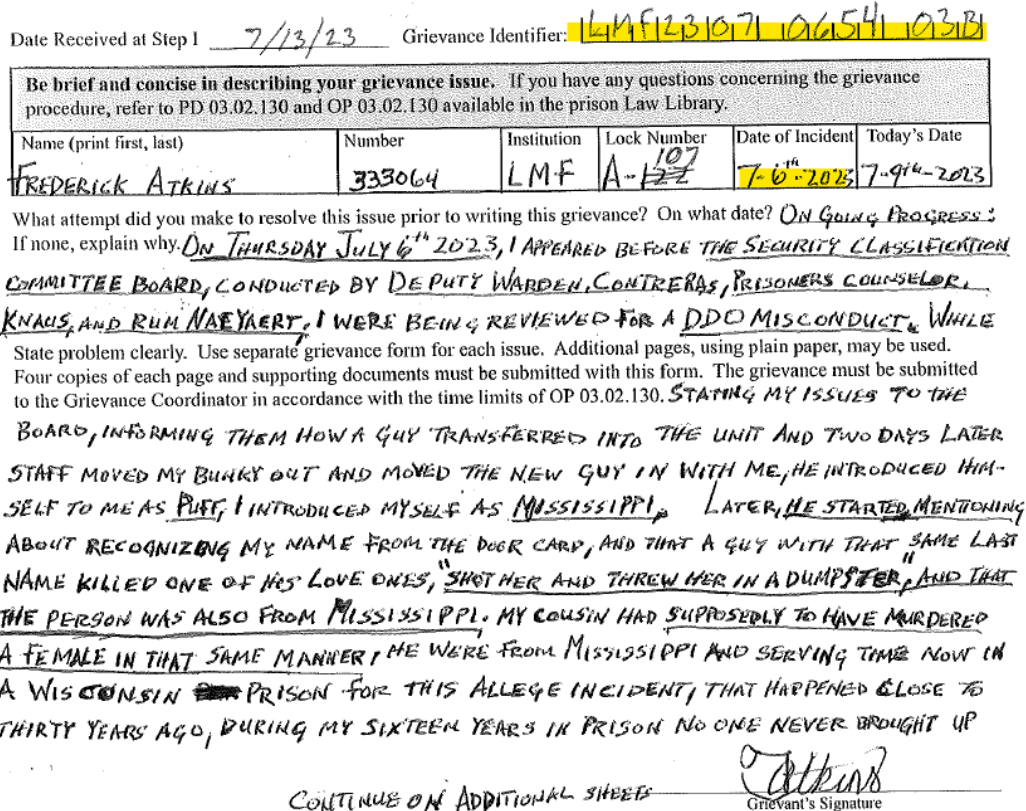 Date Received at Step I 7/13/23 Grievance Identifier: LMF 23 07 0654 03B
Be brief and concise in describing your grievance issue. If you have any questions concerning the grievance
procedure, refer to PD 03.02.130 and OP 03.02.130 available in the prison Law Library.
Name (print first, last) Number Institution Lock Number Date of Incident Today's Date
FREDERICK ATKINS 333064 LMF A-107 7-6th-2023 7-9th-2023
What attempt did you make to resolve this issue prior to writing this grievance? On what date? ON GOING PROGRESS:
If none, explain why. ON THURSDAY JULY 6th 2023, I APPEARED BEFORE THE SECURITY CLASSIFICATION
COMMITTEE BOARD, CONDUCTED BY DEPUTY WARDEN, CONTRERAS, PRISONERS COUNSELOR,
KNAUS, AND RUM NAEYAERT, I WERE BEING REVIEWED FOR A DDO MISCONDUCT. WHILE
State problem clearly. Use separate grievance form for each issue. Additional pages, using plain paper, may be used.
Four copies of each page and supporting documents must be submitted with this form. The grievance must be submitted
to the Grievance Coordinator in accordance with the time limits of OP 03.02.130. STATING MY ISSUES TO THE
BOARD, INFORMING THEM HOW A GUY TRANSFERRED INTO THE UNIT AND TWO DAYS LATER
STAFF MOVED MY BUNKY OUT AND MOVED THE NEW GUY IN WITH ME, HE INTRODUCED HIM-
SELF TO ME AS PUFF, I INTRODUCED MYSELF AS MISSISSIPPI. LATER, HE STARTED MENTIONING
ABOUT RECOGNIZING MY NAME FROM THE DOOR CARD, AND THAT A GUY WITH THAT SAME LAST
NAME KILLED ONE OF HIS LOVE ONES, "SHOT HER AND THREW HER IN A DUMPSTER", AND THAT
THE PERSON WAS ALSO FROM MISSISSIPPI. MY COUSIN HAD SUPPOSEDLY TO HAVE MURDERED
A FEMALE IN THAT SAME MANNER, HE WERE FROM MISSISSIPPI AND SERVING TIME NOW IN
A WISCONSIN PRISON FOR THIS ALLEGE INCIDENT, THAT HAPPENED CLOSE TO
THIRTY YEARS AGO, DURING MY SIXTEEN YEARS IN PRISON NO ONE NEVER BROUGHT UP
CONTINUE ON ADDITIONAL SHEETS Atkins
Grievant's Signature